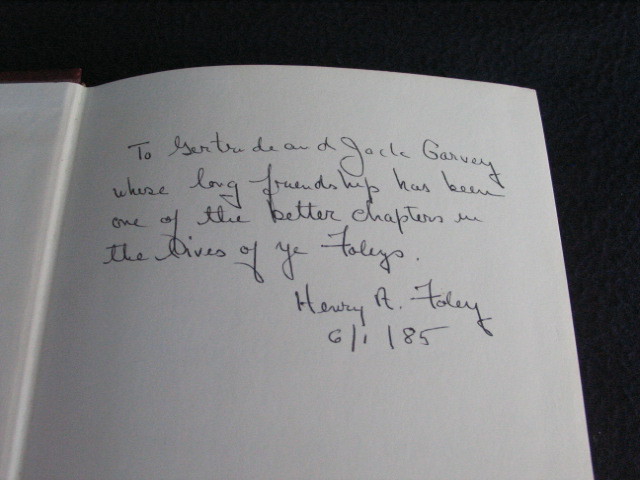 To Gertrude and Jack Garvey
whose long friendship has been
one of the better chapters in
the lives of ye Foleys.
Henry A. Foley
6/1/85